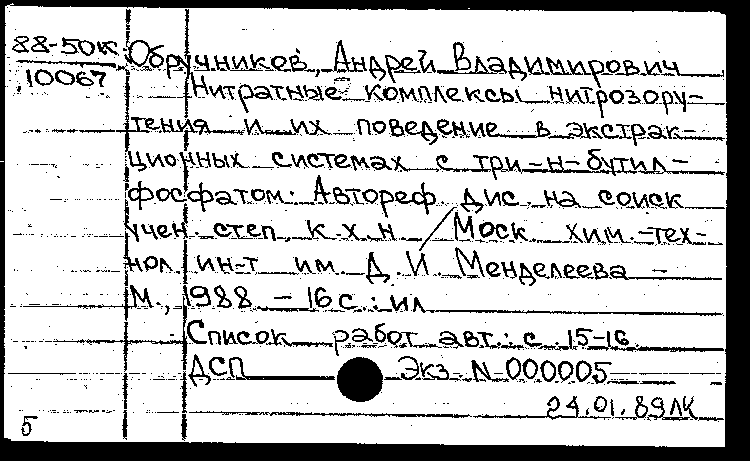 88-50к Обручников, Андрей Владимирович
10067 Нитратные комплексы нитрозору-
тения и их поведение в экстрак-
ционных системах с три-н-бутил-
фосфатом. Автореф. дис. на соиск
учен. степ. к.х.н / Моск. хим.-тех-
нол. ин-т им. Д. И. Менделеева -
М., 1988. - 16 с. : ил
Список работ авт.: с. 15-16.
ДСП Экз. N 000005
24.01.89ЛК
5